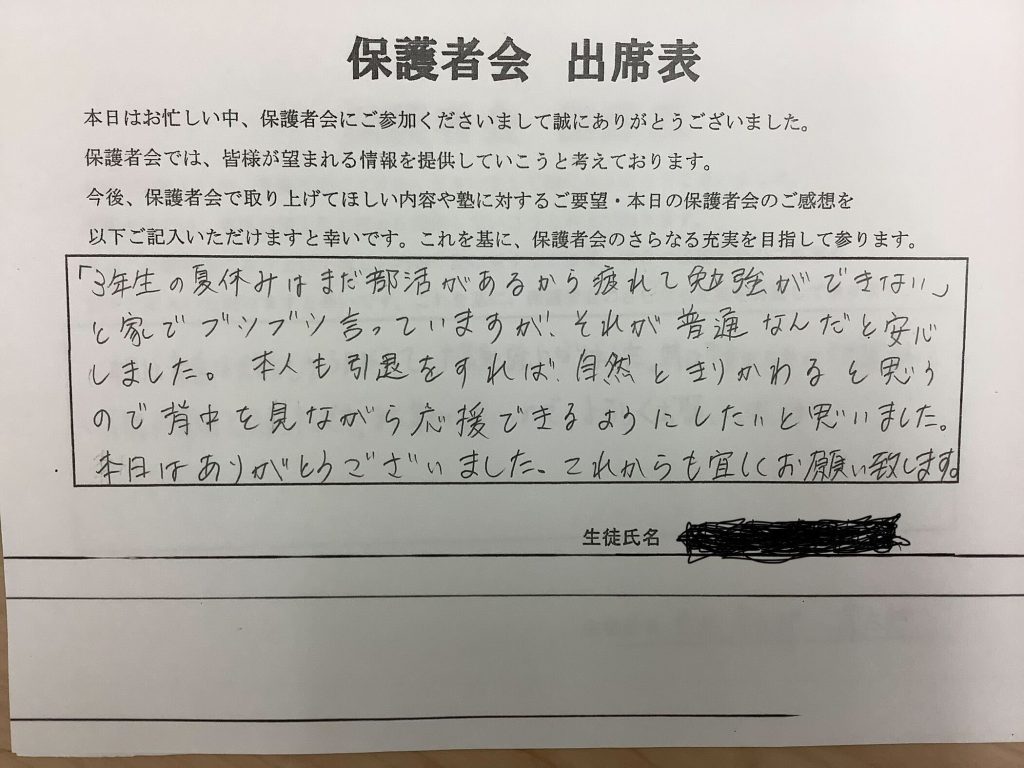 保護者会 出席表
本日はお忙しい中、保護者会にご参加くださいまして誠にありがとうございました。
保護者会では、皆様が望まれる情報を提供していこうと考えております。
今後、保護者会で取り上げてほしい内容や塾に対するご要望・本日の保護者会のご感想を
以下ご記入いただけますと幸いです。これを基に、保護者会のさらなる充実を目指して参ります。
「3年生の夏休みはまだ部活があるから疲れて勉強ができない」
と家でブツブツ言っていますが、それが普通なんだと安心
しました。本人も引退をすれば、自然ときりかわると思う
ので背中を見ながら応援できるようにしたいと思いました。
本日はありがとうございました。これからも宜しくお願い致します。
生徒氏名